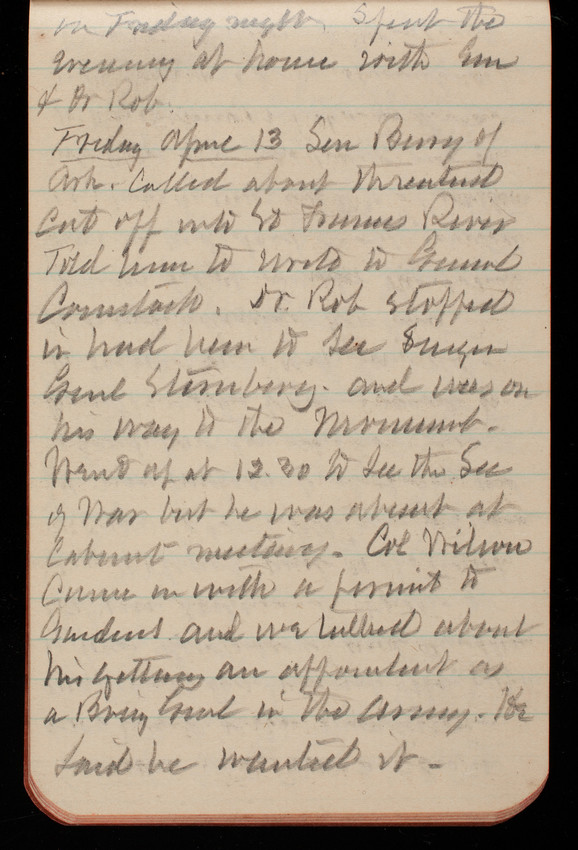 on Friday night. Spent the
evening at home with Em
& Dr Rob.
Friday April 13 Sen Berry of
Ark. called about threatened
Cut off into St Francis River
Told him to write to General
Comstock. Dr. Rob stopped
in had been to see Surgn
Genl Sternberg. and was on
his way to the Monument.
Went up at 12.30 to see the Sec
of War but he was absent at
Cabinet meeting. Col Wilson
Came in with a permit to
and we talked about
his getting an appointmt as
a Brig Genl in the Army. He
said he wanted it -